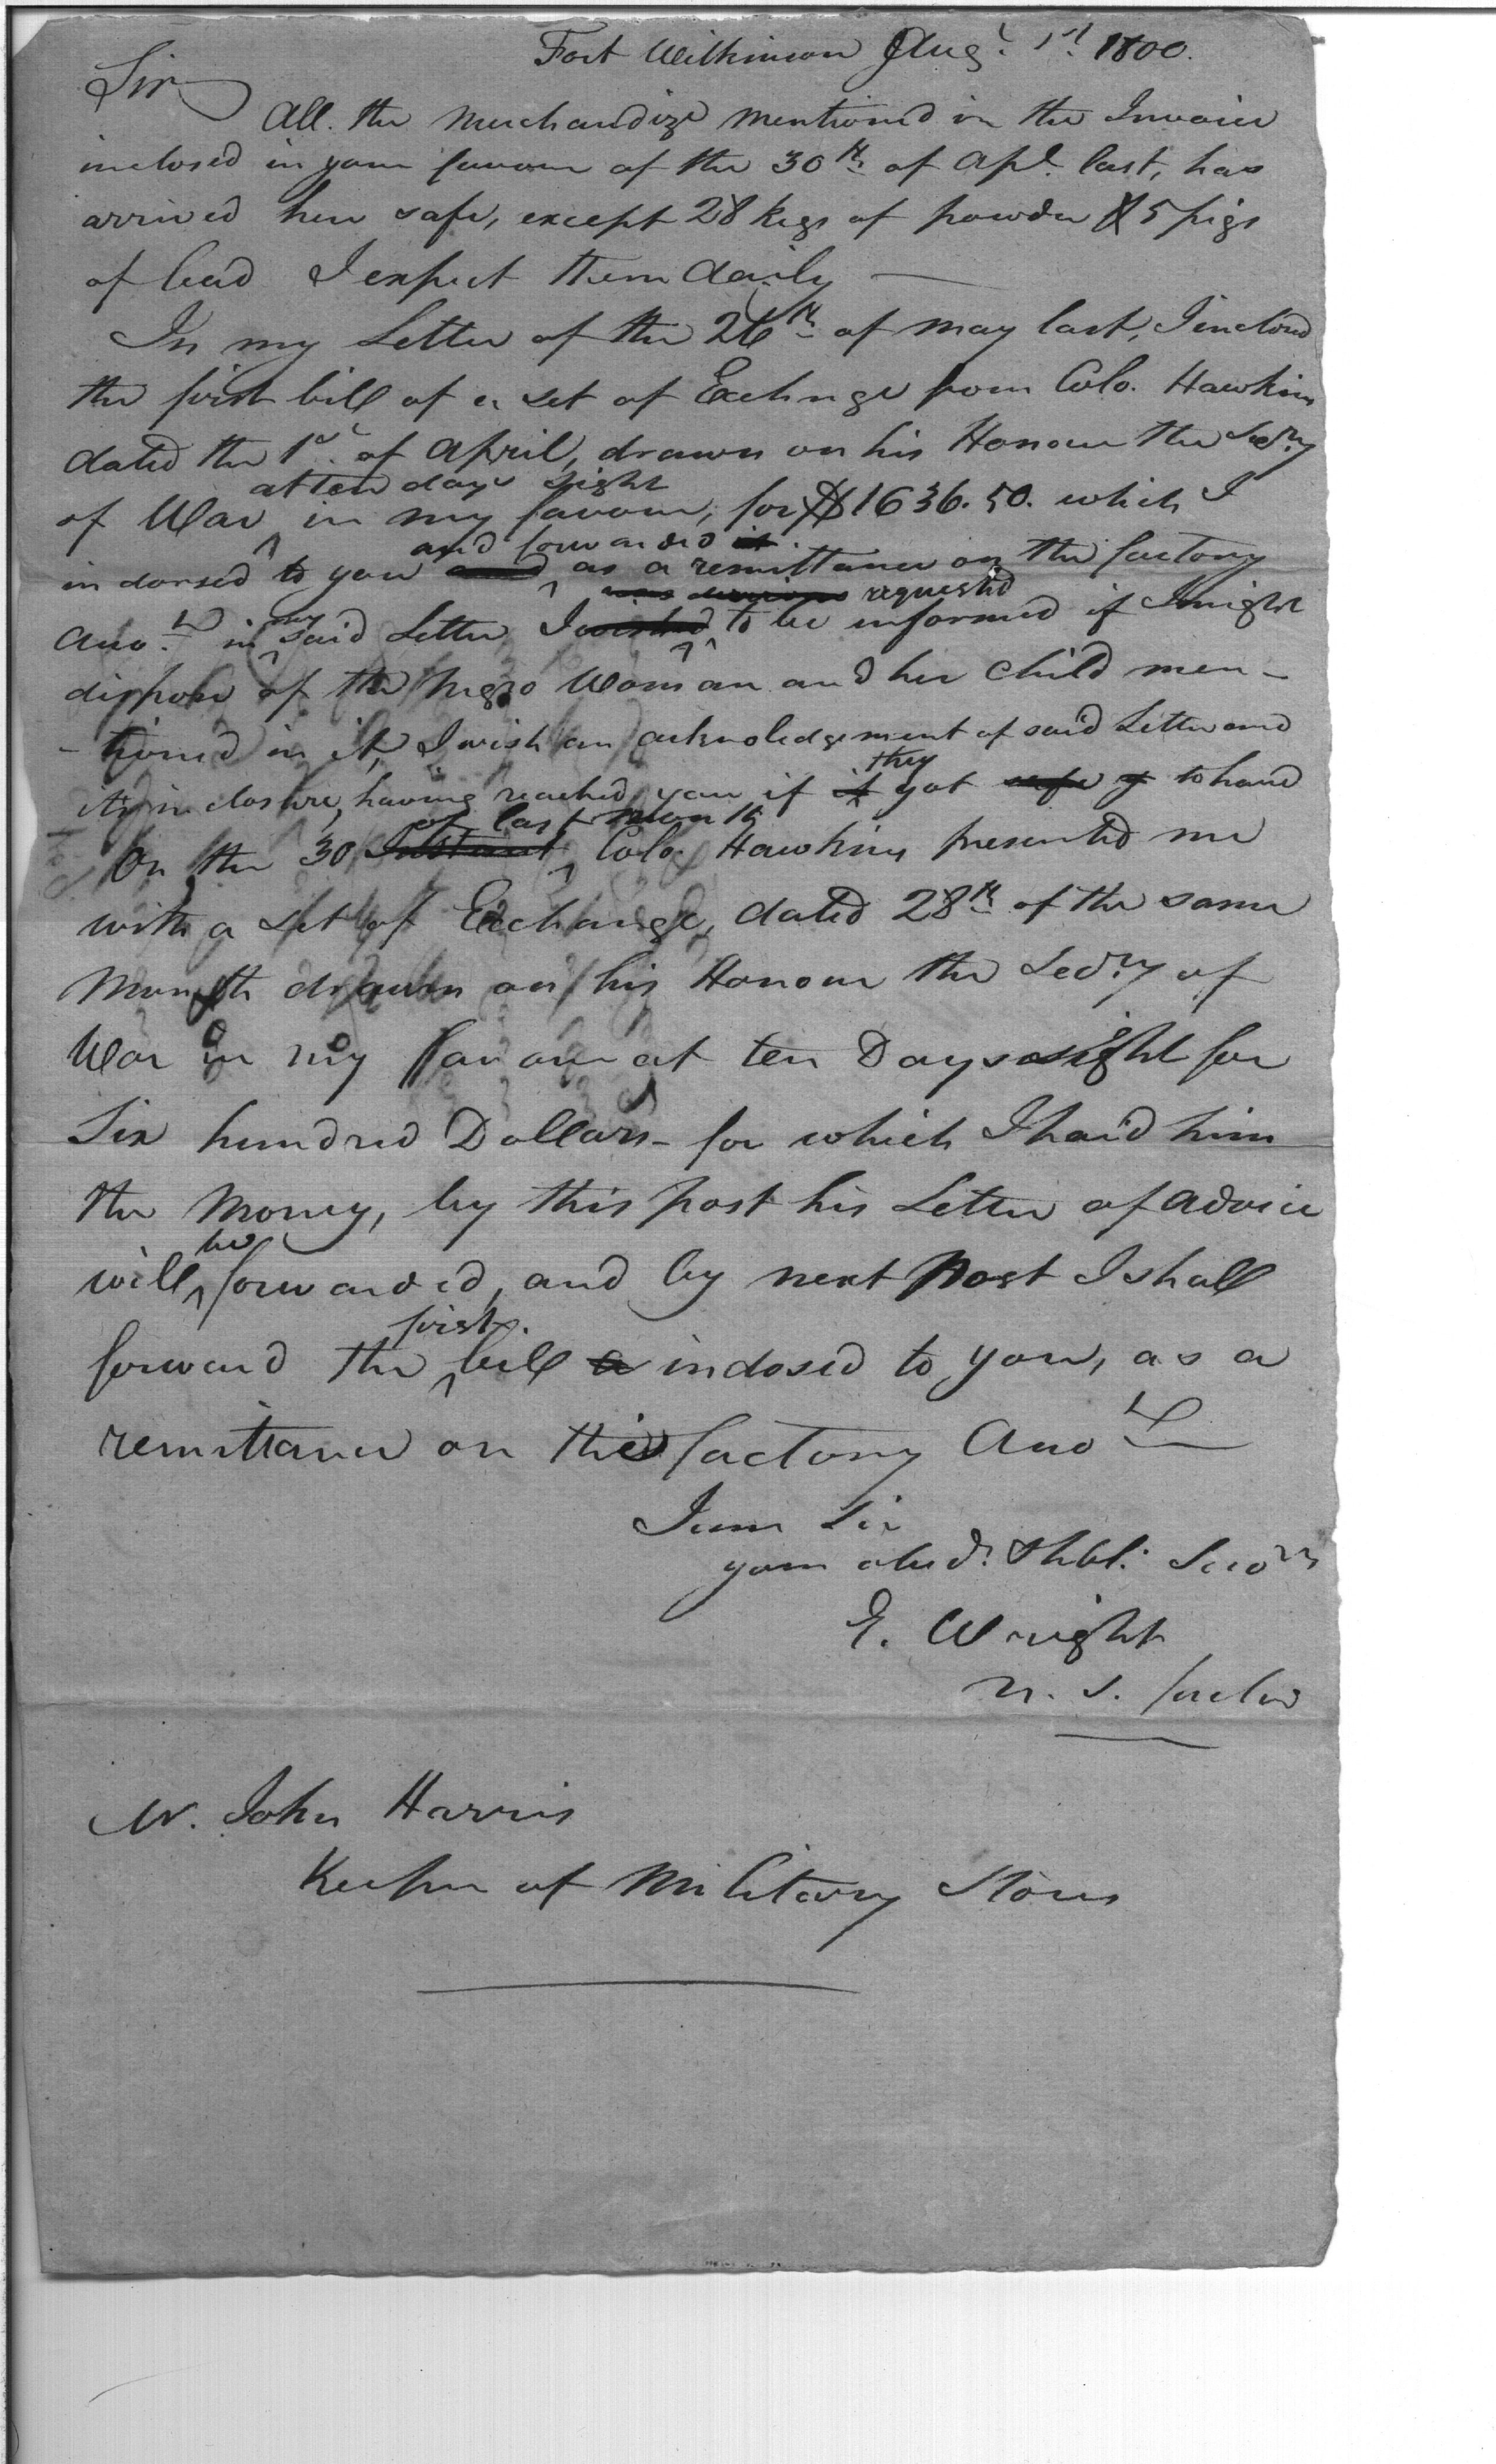 Fort Wilkinson Augt. 1st. 1800.
Sir
All the Merchandize mentioned in the Invoice
inclosed in your favour of the 30th of Apl. last, has
arrived here safe, except 28 kegs of powder & 5 pigs
of lead I expect them daily —
In my Letter of the 26th of may last, I inclosed
the first bill of a set of Exchnge from Colo. Hawkins
dated the 1st. of April, drawn on his Honour the Secry
at ten days sight
of War in my favour, for $1636.50. which I
and forwarded it
indorsed to you as a remittance on the factory
requested
Acco.t in my said Letter I wished to be informed if I might
dispose of the Negro Woman and her Child men-
-tioned in it, I wish an acknoledgement of said Letter and
they
its inclosure, having reached you if it got safe to hand
of last month
On the 30 Instant Colo. Hawkins presented me
with a set of Exchange, dated 28th of the same
Month drawn on his Honour the Secry of
War in my favour at ten Days sight for
Six hundred Dollars - for which I paid him
the Money, by this post his Letter of advice
be
will forwarded, and by next Post I shall
first
forward the bill indosed to you, as a
remittance on the factory Acco.t
I am Sir
your obed. & hbl. Serv
E. Wright
U. S. factor
Mr. John Harris
Keeper of Military Stores